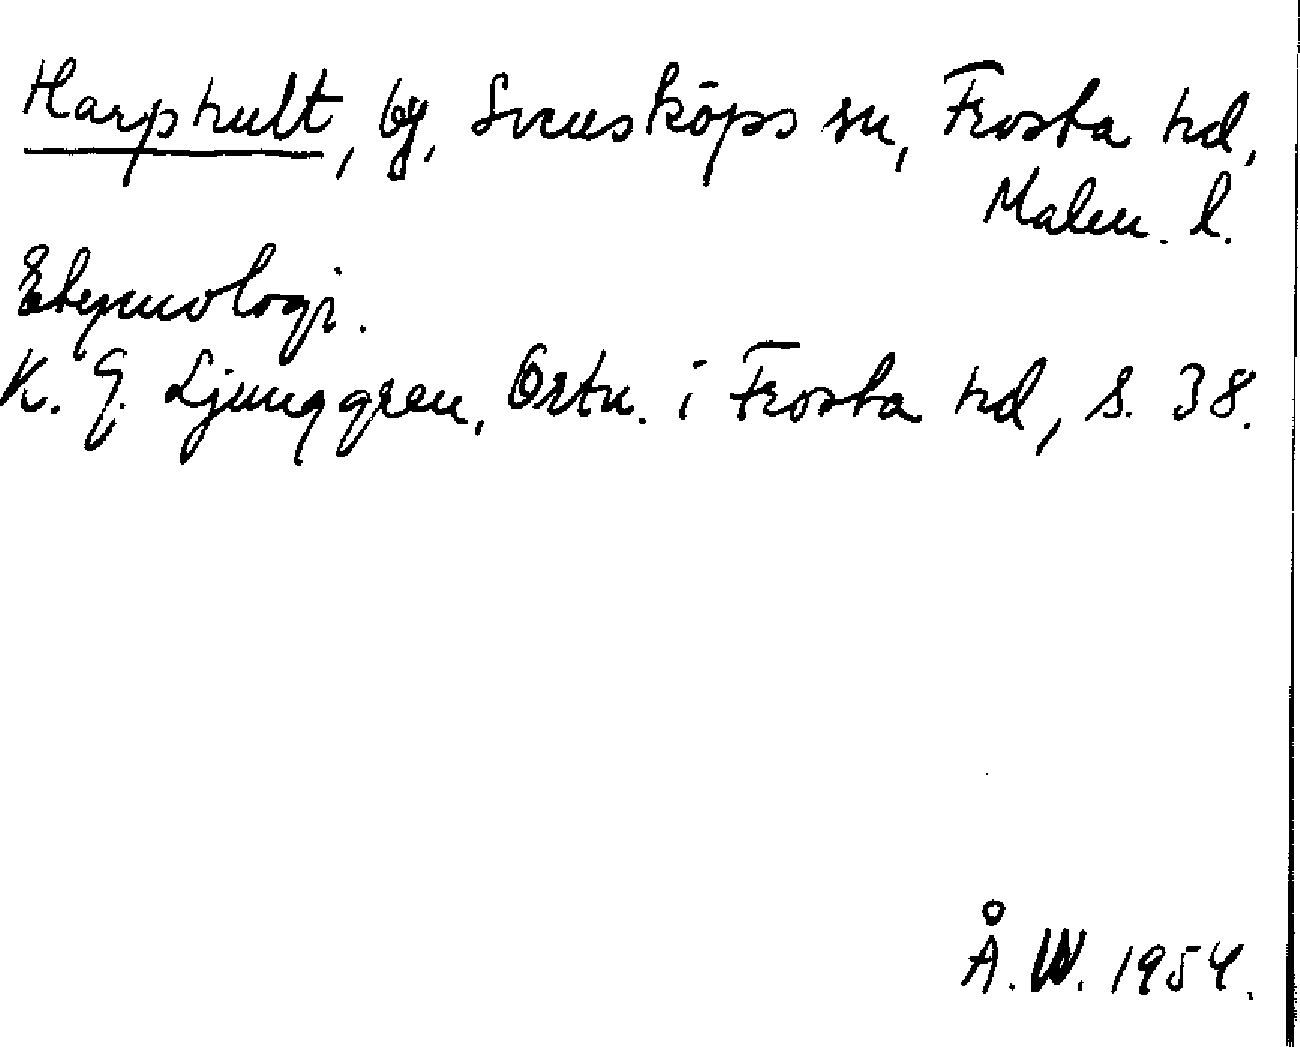 Harphult, by, Svensköps sn, Frosta hd,
Malm. l.
Etymologi.
K. G. Ljunggren, Ortn. i Frosta hd, s. 38.
Å. W. 1954.